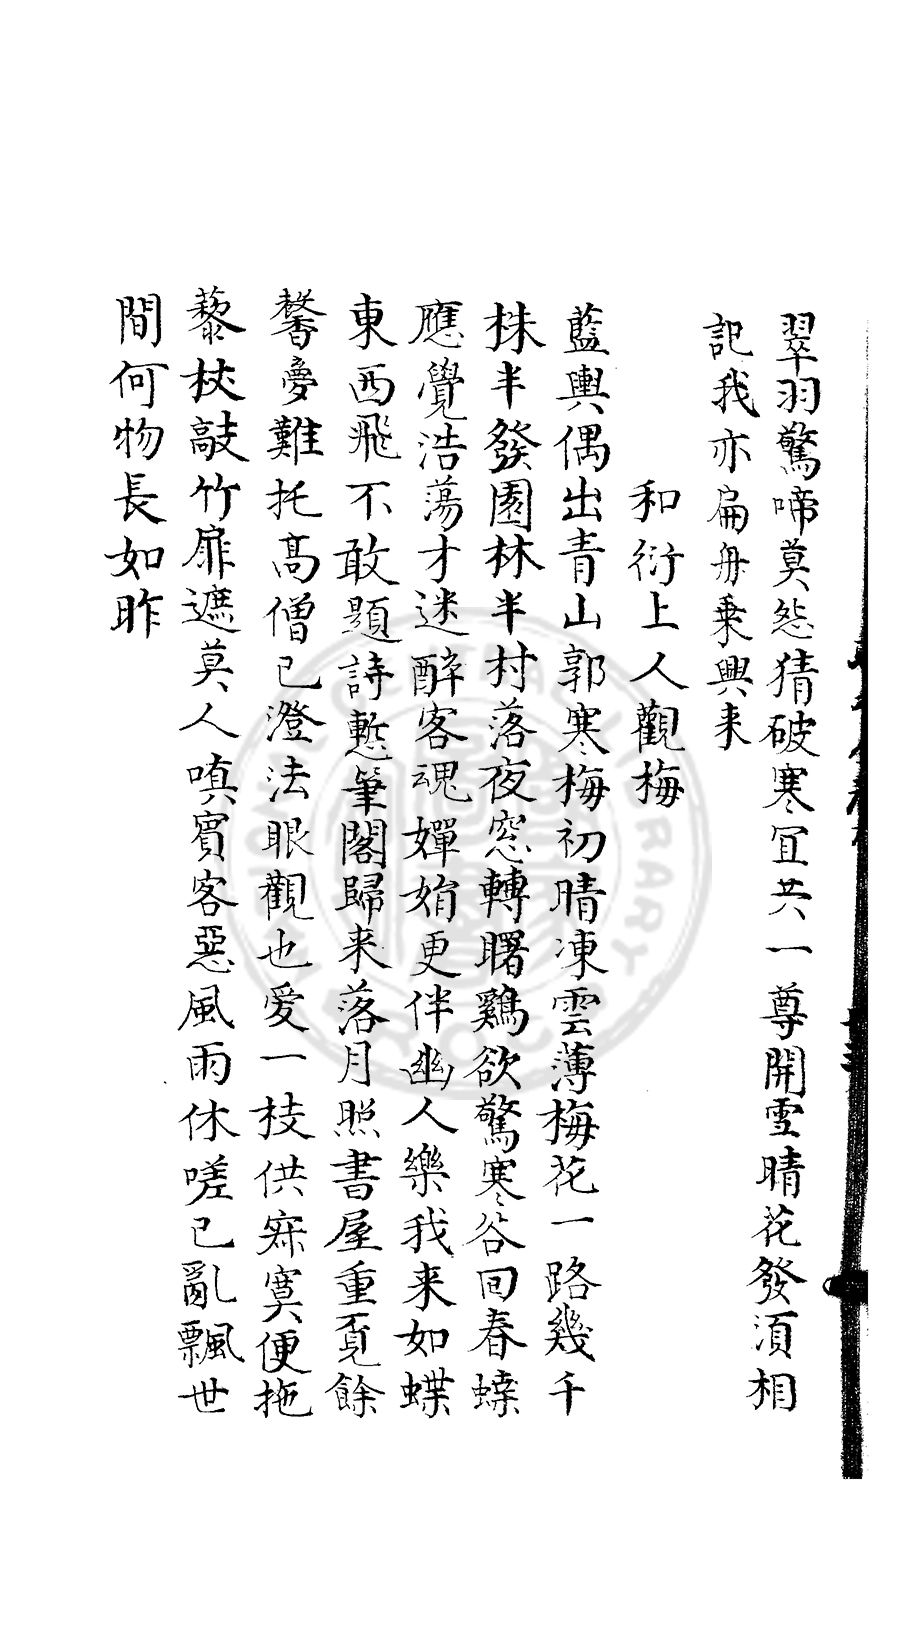 翠羽驚啼莫怨猜破寒冝共一尊開雪晴花發須相
記我亦扁舟乗興来
和衍上人觀梅
藍輿偶出青山郭寒梅初晴凍雲薄梅花一路幾千
株半發園林半村落夜窓轉曙鷄欲驚寒谷回春蜂
應覺浩蕩才迷醉客魂嬋娟更伴幽人樂我来如蝶
東西飛不敢題詩慙筆閣歸来落月照書屋重覔餘
馨夢難托髙僧已澄法眼觀也愛一枝供寂寞便拖
藜杖敲竹扉遮莫人嗔賓客惡風雨休嗟已亂飄世
間何物長如昨